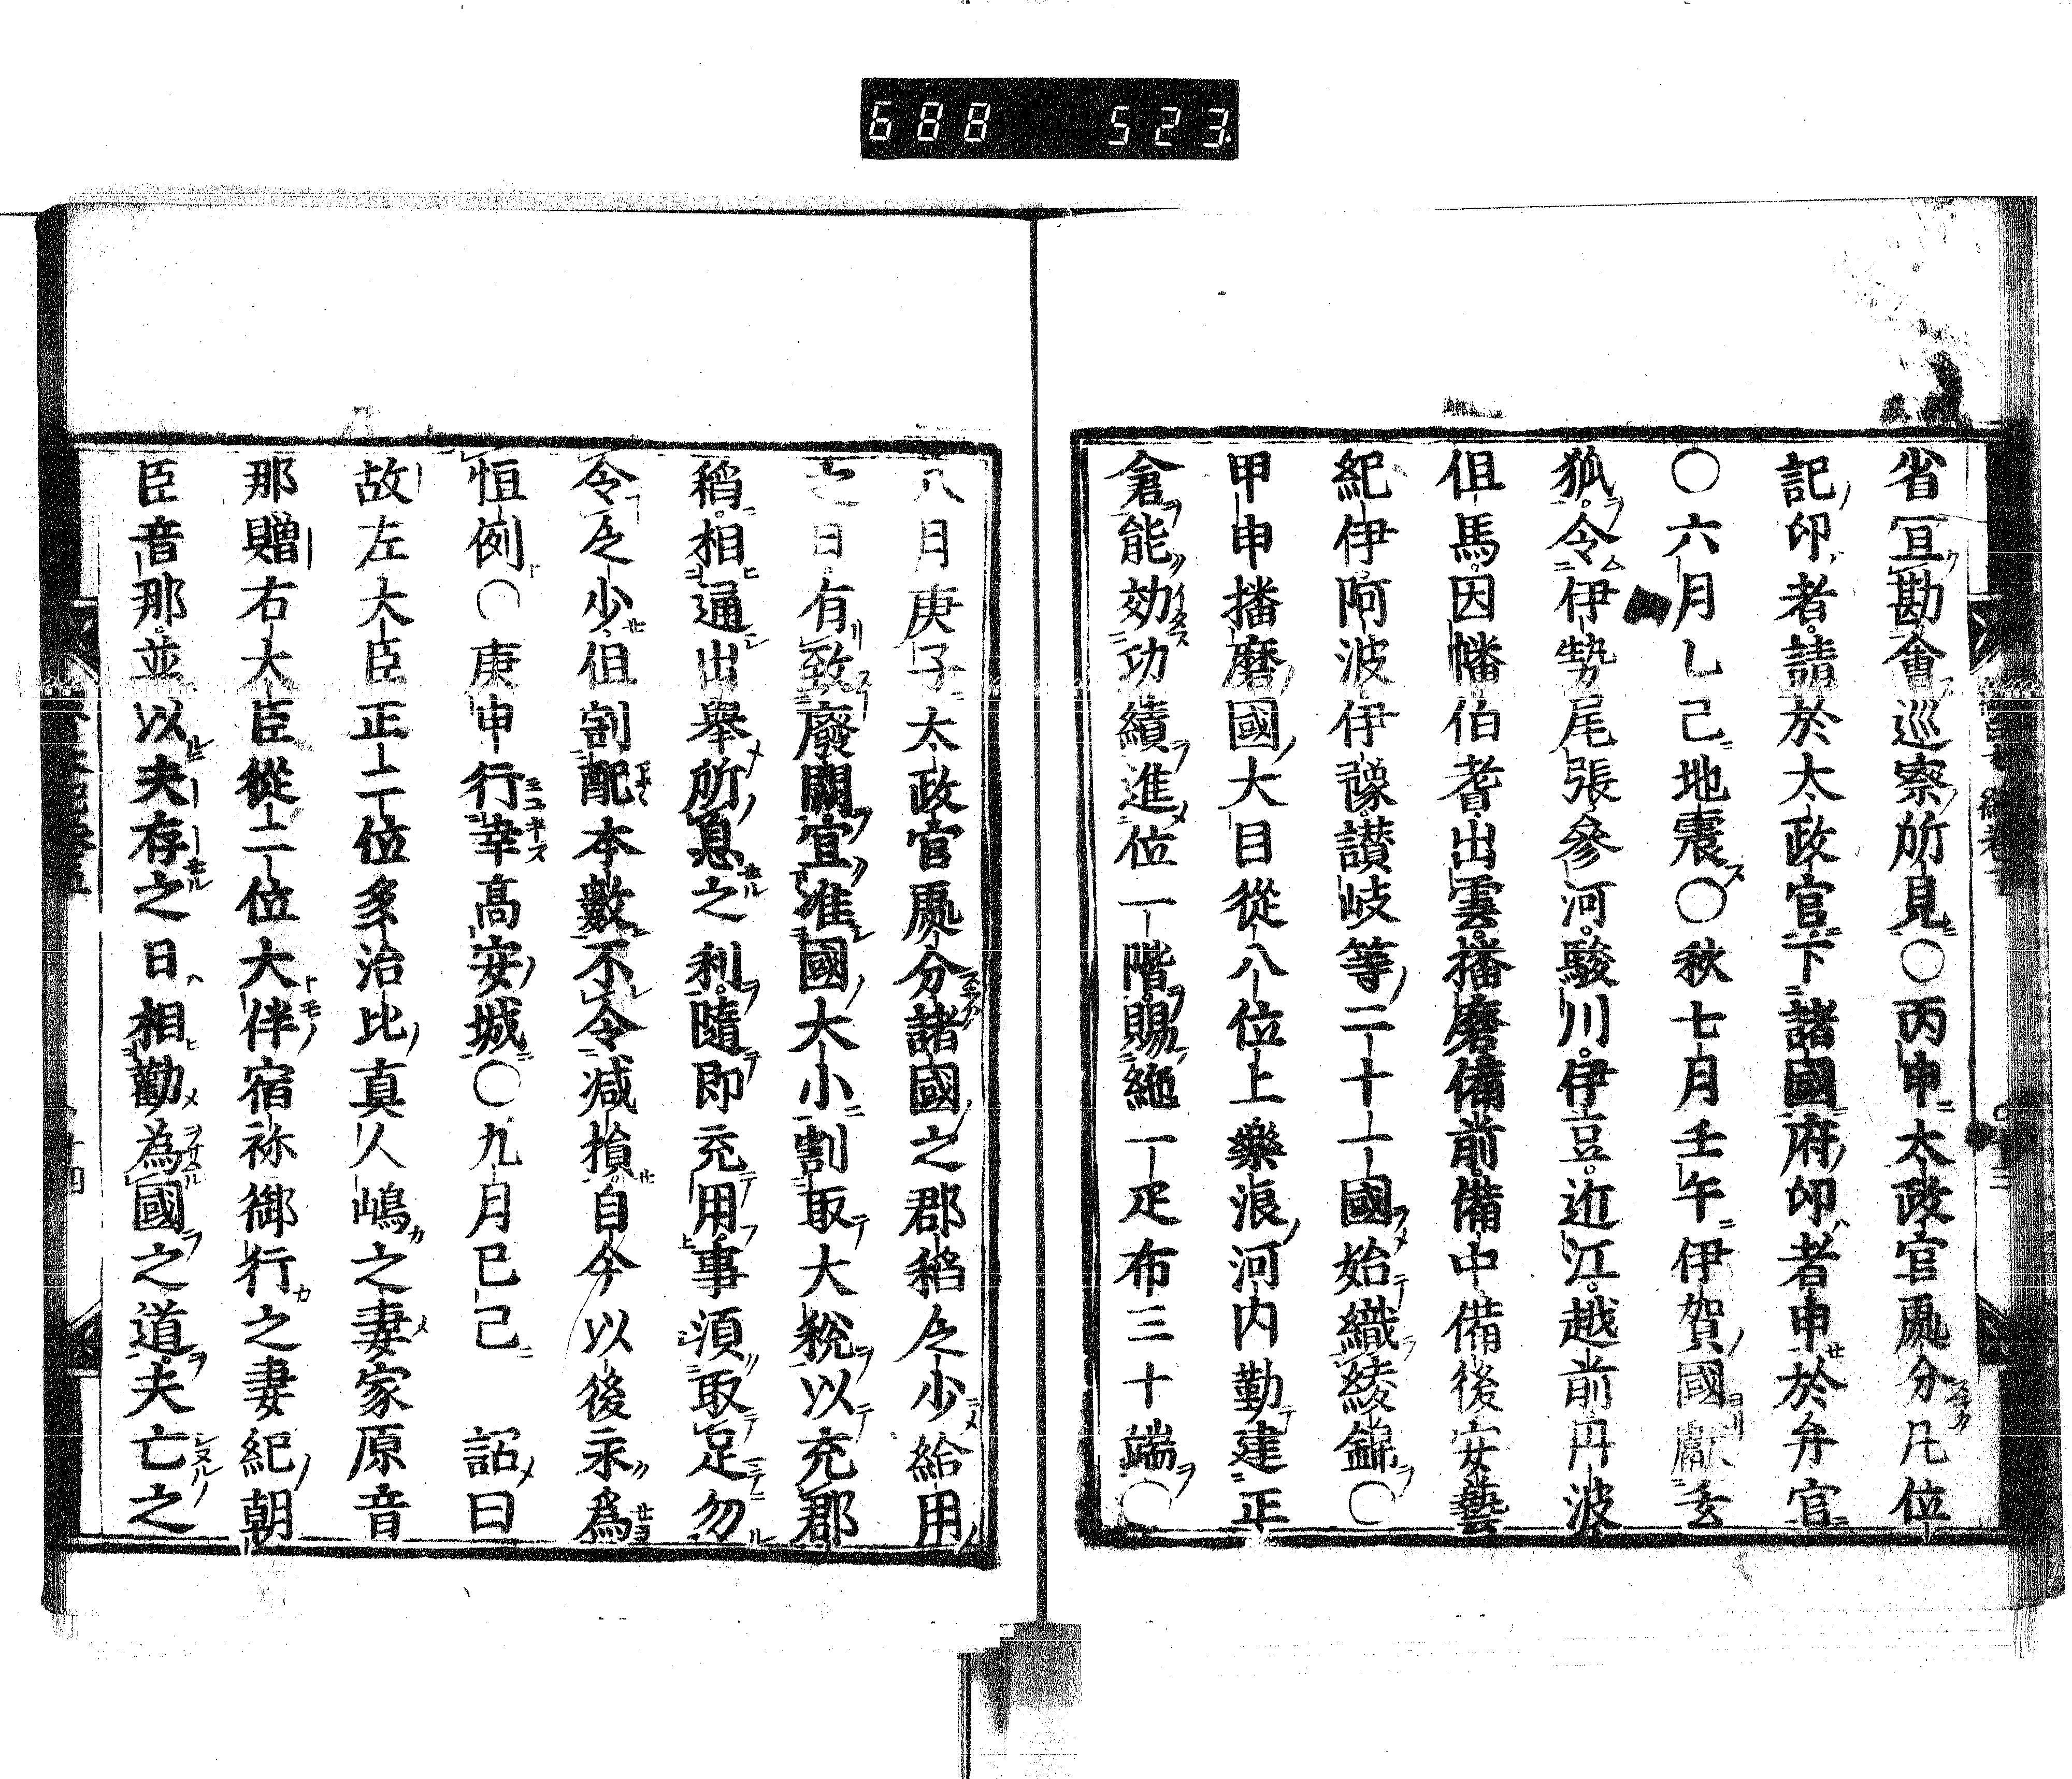 688 523
省宜勘會巡察所見〇丙申太政官處分凢位
記印者請於太政官下諸國府印者申於弁官
〇六月乙己地震〇秋七月壬午伊賀國獻玄
狐令伊勢尾張參河駿川伊豆近江越前丹波
但馬因幡伯耆出雲播磨備前備中備後安藝
紀伊阿波伊豫讃岐等二十一國始織綾錦〇
甲申播磨國大目從八位上樂浪河内勤建正
倉能効功績進位一階賜絁一疋布三十端〇
八月庚子太政官處分諸國之郡稻乏少給用
之日有致廢闕宜准國大小割取大税以充郡
稻相通出舉所息之利隨即充用事須取足勿
令乏少但割配本數不令減損自今以後永爲
恒例〇庚申行幸髙安城〇九月已己 詔曰
故左大臣正二位多治比真人嶋之妻家原音
那贈右大臣從二位大伴宿祢御行之妻紀朝
臣音那並以夫存之日相勸為國之道夫亡之